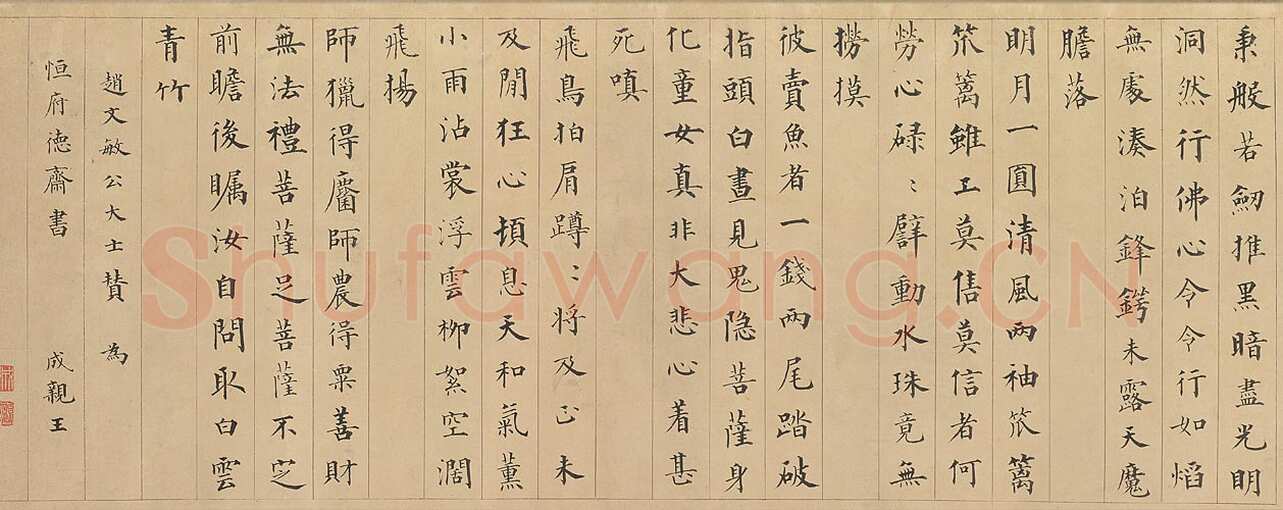 秉般若劒摧黑暗盡光明
洞然行佛心令令行如焰
無處湊泊鋒鍔未露天魔
膽落
明月一圓清風兩袖笊篱
笊篱雖工莫售莫信者何
勞心碌〻擘動水珠竟無
撈摸
彼賣魚者一錢兩尾踏破
指頭白晝見鬼隐菩薩身
化童女真非大悲心着甚
死嗔
飛鳥拍肩蹲〻將及而未
及閒狂心頓息天和氣薰
小雨沾裳浮雲柳絮空濶
飛揚
師獵得麕師農得粟善財
無法禮菩薩足菩薩不
前瞻後瞩汝自問取白雲
青竹
趙文敏公大士賛 為
恒府德齋書 成親王
Shufawang.CN